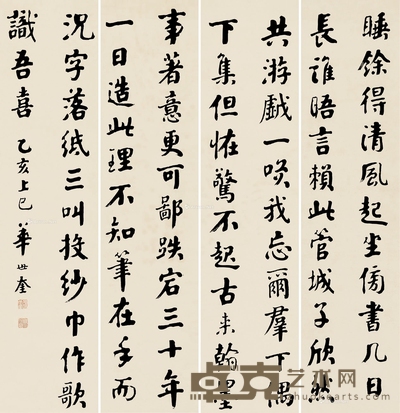 睡餘得清風起坐傍書几日
長誰晤言賴此管城子欣然
共游戲一咲我忘爾羣下偶
下集但怪驚不起古来翰墨
事著意更可鄙跌宕三十年
一日造此理不知筆在手而
況字落紙三叫投紗巾作歌
識吾喜 乙亥上巳 華世奎
卓克艺术网